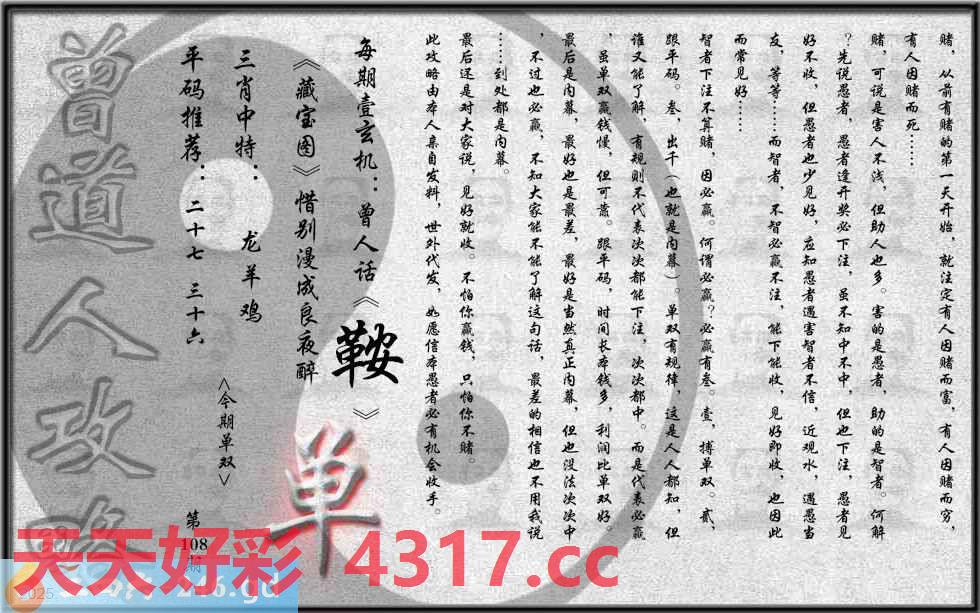 赌，从前有赌的第一天开始，就注定有人因赌而富，有人因赌而穷，
有人因赌而死……
赌，可说是害人不浅，但助人也多。害的是愚者，助的是智者。何解
？先说愚者，愚者逢开奖必下注，虽不知中不中，但也下注，愚者见
好不收，但愚者也少见好，应知愚者遇害智者不信，近观水，遇愚当
友，等等……而智者，不智必赢不注，能下能收，见好即收，也因此
而常见好……
智者下注不算赌，因必赢。何谓必赢？必赢有叁。壹，搏单双。贰，
跟平码。叁，出千（也就是内幕）。单双有规律，这是人人都知，但
谁又能了解，有规则不代表次次都能下注，次次都中。而是代表必赢
，虽单双赢钱慢，但可靠。跟平码，时间长本钱多，利润比单双好。
最后是内幕，最好也是最差，最好是当然真正内幕，但也没法次次中
，不过也必赢，不知大家能不能了解这句话，最差的相信也不用我说
……到处都是内幕。
最后还是对大家说，见好就收。不怕你赢钱，只怕你不赌。
此攻略由本人亲自发料，世外代发，如愿信本愚者必有机会收手。
每期壹玄机：曾人话《鞍》
《藏宝图》惜别漫成良夜醉
三肖中特：龙羊鸡
平码推荐：二十七 三十六
<今期单双>
单
第108期
曾道人攻略
天天好彩 4317.cc
2025
246.gd